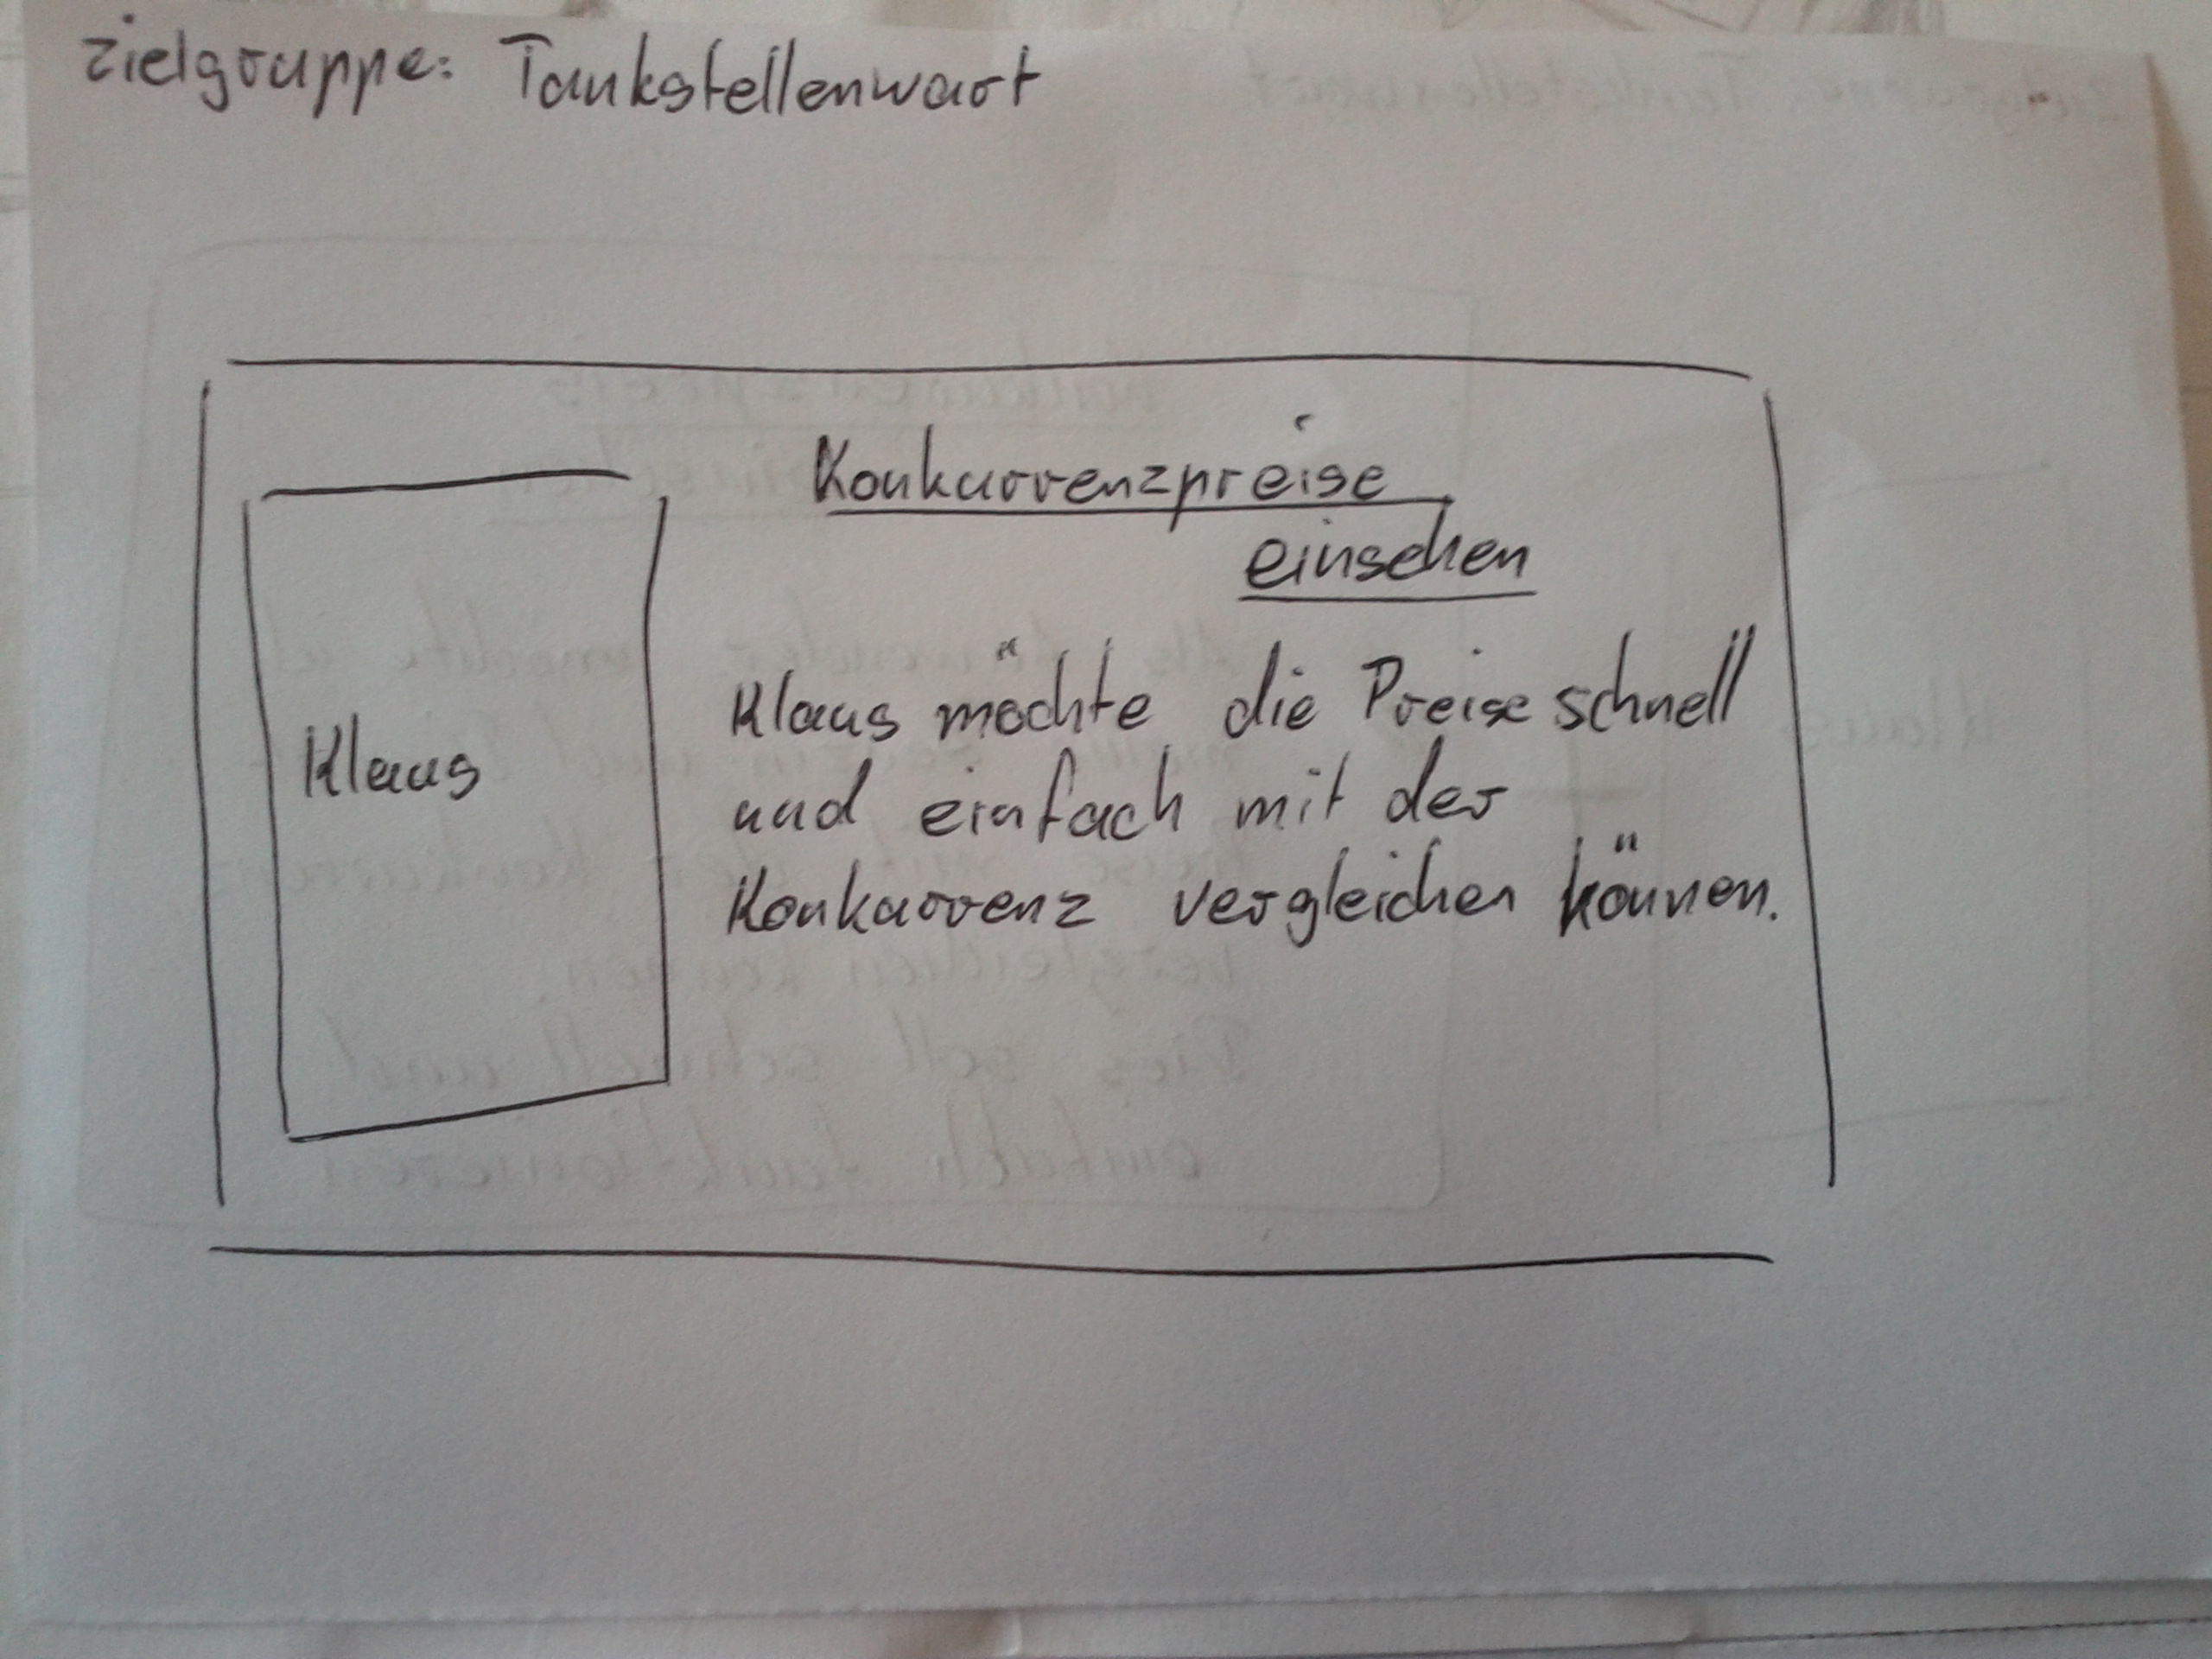 Zielgruppe: Tankstellenwart
Konkurrenzpreise
einsehen
Klaus
Klaus möchte die Preise schnell
und einfach mit der
Konkurrenz vergleichen können.